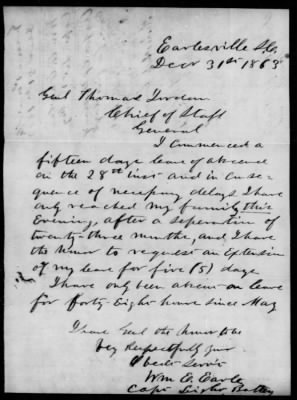 Earlesville S.C.
Decr 31st 1863
Genl Thomas Jordan
Chief of Staff
General
I Commenced a
fifteen days leave of absence
on the 28th inst and in Conse-
quence of necessary delays I have
only reached my family this
Evening, after a seperation of
twenty-three months, and I have
the honor to request an Extension
of my leave for five (5) days
I have only been absent on leave
for forty-Eight hours since May
I am Genl the honor to be
Very Respectfully your
Obedt Servt
Wm E. Earle
Capt Light Battery